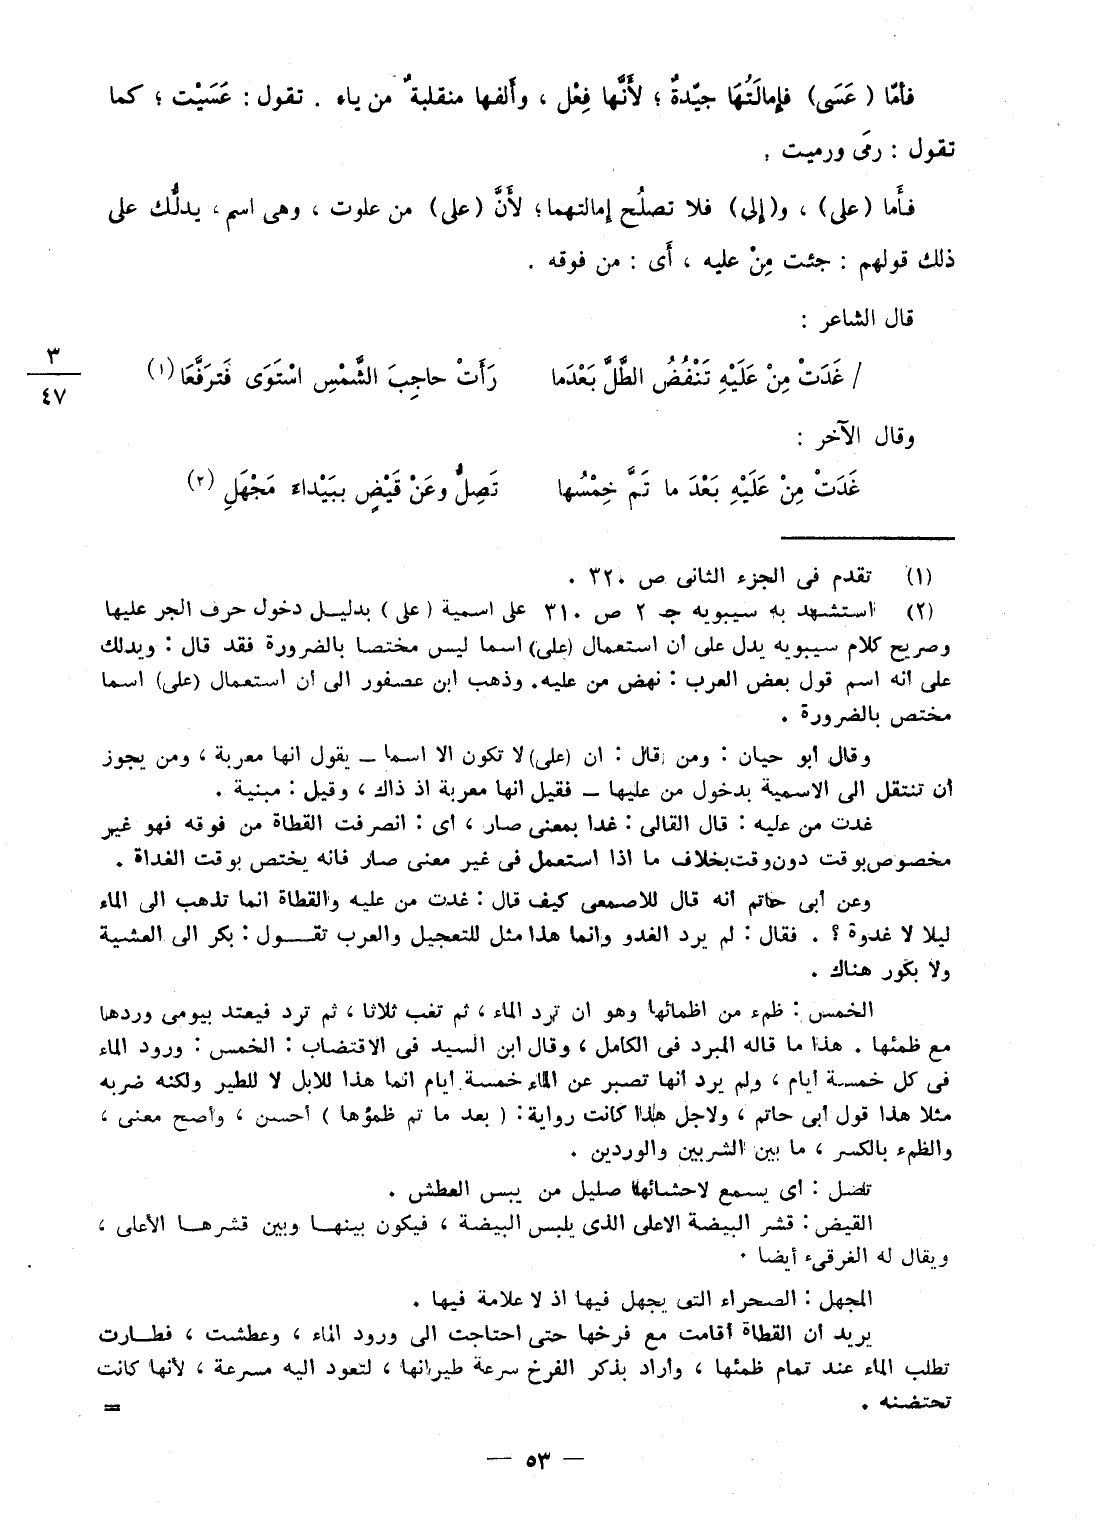 فأمّا ( عَسَى) فإمالَتُهَا جيّدةٌ ؛ لأَنَّها فِعْل ، وأَلفها منقلبةٌ من ياء . تقول : عَسَيْت ؛ كما
تقول : رمَى ورميت .
فأَما (على) ، و(إلى) فلا تصلُح إمالتهما؛ لأَنَّ (على) من علوت ، وهى اسم ، يدلُّك على
ذلك قولهم : جئت مِنْ عليه ، أَى : من فوقه .
قال الشاعر :
/ غَدَتْ مِنْ عَلَيْهِ تَنْفُضُ الطَّلَّ بَعْدَما رَأَتْ حاجِبَ الشَّمْسِ اسْتَوَى فَترَفَّعَا (١)
٣
٤٧
وقال الآخر :
غَدَتْ مِنْ عَلَيْهِ بَعْدَ ما تَمَّ خِمْسُها تَصِلُّ وعَنْ قَيْضٍ ببَيْداءَ مَجْهَلِ (٢)
(١) تقدم فى الجزء الثانى ص ٣٢٠ .
(٢) استشهد به سيبويه جـ ٢ ص ٣١٠ على اسمية ( على ) بدليل دخول حرف الجر عليها
وصريح كلام سيبويه يدل على أن استعمال (على) اسما ليس مختصا بالضرورة فقد قال : ويدلك
على انه اسم قول بعض العرب : نهض من عليه. وذهب ابن عصفور الى أن استعمال (على) اسما
مختص بالضرورة .
وقال أبو حيان : ومن قال : ان (على) لا تكون الا اسما ــ يقول انها معربة ، ومن يجوز
أن تنتقل الى الاسمية بدخول من عليها ــ فقيل انها معربة اذ ذاك ، وقيل : مبنية .
غدت من عليه : قال القالى : غدا بمعنى صار ، أى : انصرفت القطاة من فوقه فهو غير
مخصوص بوقت دون وقت بخلاف ما اذا استعمل فى غير معنى صار فانه يختص بوقت الغداة .
وعن أبى حاتم أنه قال للاصمعى كيف قال : غدت من عليه والقطاة انما تذهب الى الماء
ليلا لا غدوة ؟ . فقال : لم يرد الغدو وانما هذا مثل للتعجيل والعرب تقـــول : بكر الى العشية
ولا بكور هناك .
الخمس : ظمء من اظمائها وهو ان ترد الماء ، ثم تغب ثلاثا ، ثم ترد فيعتد بيومى وردها
مع ظمئها . هذا ما قاله المبرد فى الكامل ، وقال ابن السيد فى الاقتضاب : الخمس : ورود الماء
فى كل خمسة أيام ، ولم يرد أنها تصبر عن الماء خمسة أيام انما هذا للابل لا للطير ولكنه ضربه
مثلا هذا قول أبى حاتم ، ولاجل هذا كانت رواية : ( بعد ما تم ظمؤها ) أحسن ، وأصح معنى ،
والظمء بالكسر ، ما بين الشربين والوردين .
تصل : أى يسمع لاحشائها صليل من يبس العطش .
القيض : قشر البيضة الاعلى الذى يلبس البيضة ، فيكون بينهــا وبين قشرهــا الأعلى ،
ويقال له الغرقىء أيضا .
المجهل : الصحراء التى يجهل فيها اذ لا علامة فيها .
يريد أن القطاة أقامت مع فرخها حتى احتاجت الى ورود الماء ، وعطشت ، فطــارت
تطلب الماء عند تمام ظمئها ، وأراد بذكر الفرخ سرعة طيرانها ، لتعود اليه مسرعة ، لأنها كانت
تحتضنه . =
— ٥٣ —